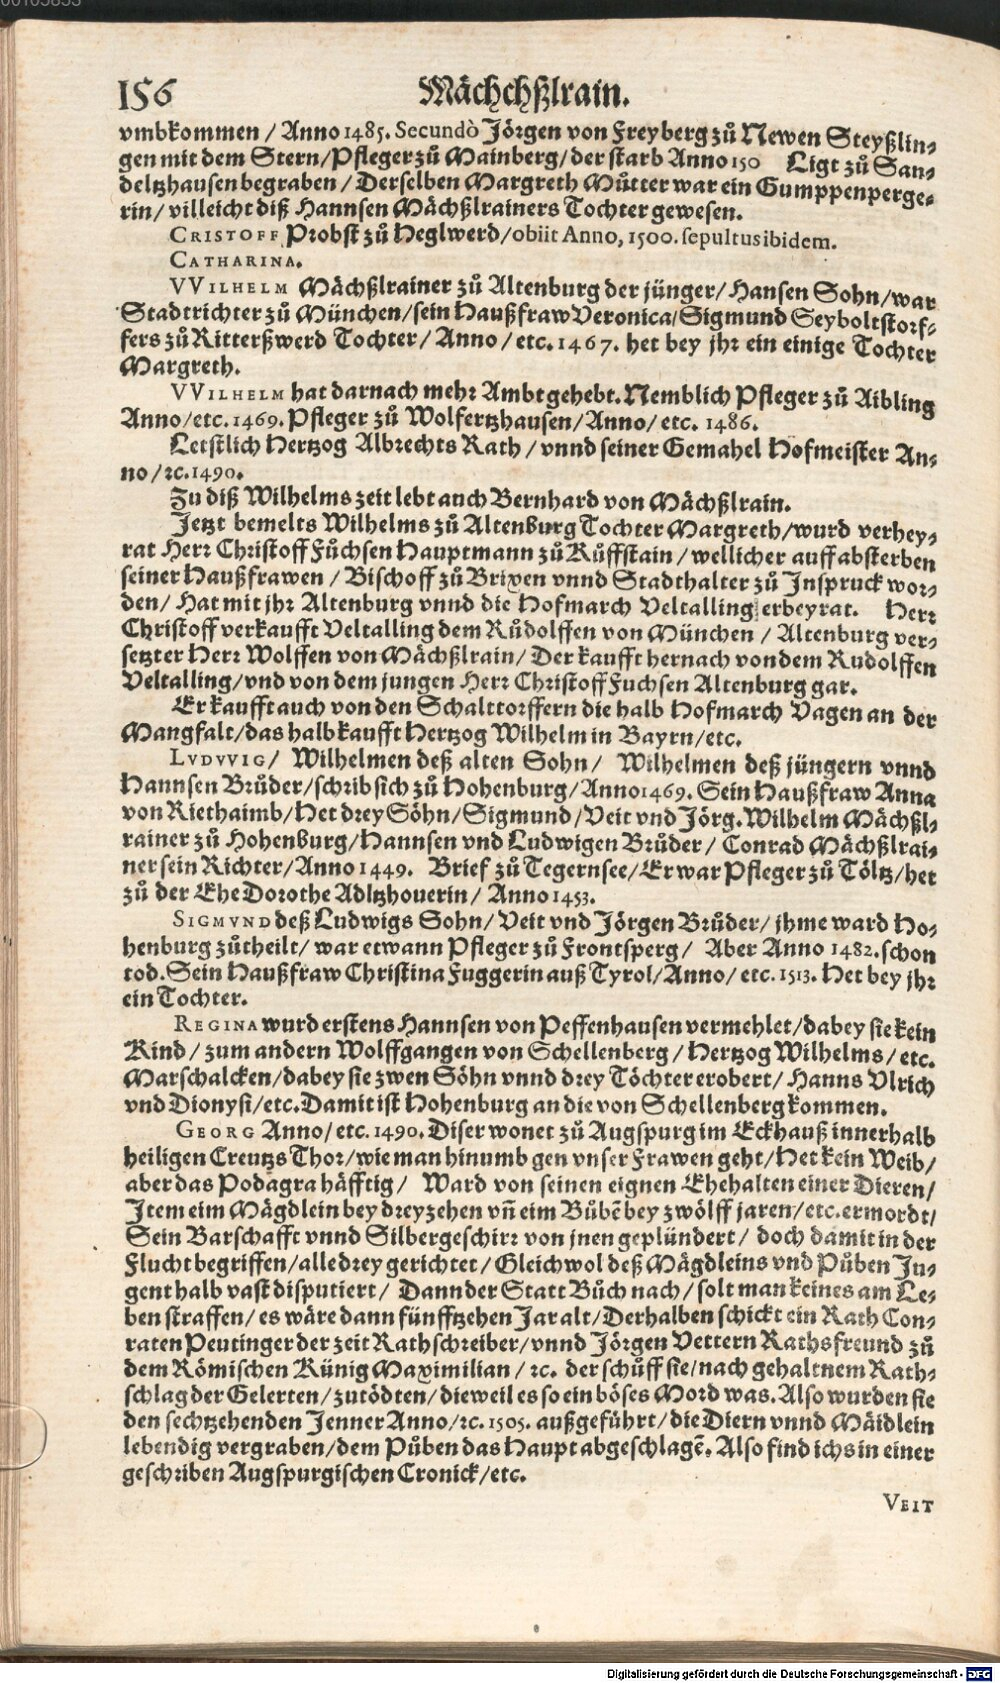 156 Mächchßlrain.
vmbkommen / Anno 1485. Secundò Jörgen von Freyberg zů Newen Steyßlin⸗
gen mit dem Stern / Pfleger zů Mainberg / der starb Anno 150 Ligt zů San⸗
deltzhausen begraben / Derselben Margreth Můtter war ein Gumppenperge⸗
rin / villeicht diß Hannsen Mächßlrainers Tochter gewesen.
CRISTOFF Probst zů Heglwerd / obiit Anno, 1500. sepultus ibidem.
CATHARINA.
VVILHELM Mächßlrainer zů Altenburg der jünger / Hansen Sohn / war
Stadtrichter zů München / sein Haußfraw Veronica / Sigmund Seyboltstorf⸗
fers zů Ritterßwerd Tochter / Anno / etc. 1467. het bey jhr ein einige Tochter
Margreth.
VVILHELM hat darnach mehr Ambt gehebt. Nemblich Pfleger zů Aibling
Anno / etc. 1469. Pfleger zů Wolfertzhausen / Anno / etc. 1486.
Letstlich Hertzog Albrechts Rath / vnnd seiner Gemahel Hofmeister An⸗
no / ꝛc. 1490.
Zu diß Wilhelms zeit lebt auch Bernhard von Mächßlrain.
Jetzt bemelts Wilhelms zů Altenburg Tochter Margreth / wurd verhey⸗
rat Herr Christoff Fůchsen Hauptmann zů Růffstain / wellicher auff absterben
seiner Haußfrawen / Bischoff zů Brixen vnnd Stadthalter zů Jnspruck wor⸗
den / Hat mit jhr Altenburg vnnd die Hofmarch Veltalling erheyrat. Herr
Christoff verkaufft Veltalling dem Růdolffen von München / Altenburg ver⸗
setzter Herr Wolffen von Mächßlrain / Der kaufft hernach von dem Rudolffen
Veltalling / vnd von dem jungen Herr Christoff Fuchsen Altenburg gar.
Er kaufft auch von den Schalttorffern die halb Hofmarch Vagen an der
Mangfalt / das halb kaufft Hertzog Wilhelm in Bayrn / etc.
LVDVVIG / Wilhelmen deß alten Sohn / Wilhelmen deß jüngern vnnd
Hannsen Brůder / schrib sich zů Hohenburg / Anno 1469. Sein Haußfraw Anna
von Riethaimb / Het drey Söhn / Sigmund / Veit vnd Jörg. Wilhelm Mächßl⸗
rainer zů Hohenburg / Hannsen vnd Ludwigen Brůder / Conrad Mächßlrai⸗
ner sein Richter / Anno 1449. Brief zů Tegernsee / Er war Pfleger zů Töltz / het
zů der Ehe Dorothe Adltzhouerin / Anno 1453.
SIGMVND deß Ludwigs Sohn / Veit vnd Jörgen Brůder / jhme ward Ho⸗
henburg zůtheilt / war etwann Pfleger zů Frontsperg / Aber Anno 1482. schon
tod. Sein Haußfraw Christina Fuggerin auß Tyrol / Anno / etc. 1513. Het bey jhr
ein Tochter.
REGINA wurd erstens Hannsen von Peffenhausen vermehlet / dabey sie kein
Kind / zum andern Wolffgangen von Schellenberg / Hertzog Wilhelms / etc.
Marschalcken / dabey sie zwen Söhn vnnd drey Töchter erobert / Hanns Vlrich
vnd Dionysi / etc. Damit ist Hohenburg an die von Schellenberg kommen.
GEORG Anno / etc. 1490. Diser wonet zů Augspurg im Eckhauß innerhalb
heiligen Creutzs Thor / wie man hinumb gen vnser Frawen geht / Het kein Weib /
aber das Podagra häfftig / Ward von seinen eignen Ehehalten einer Dieren /
Jtem eim Mägdlein bey dreyzehen vñ eim Bůbẽ bey zwölff jaren / etc. ermordt /
Sein Barschafft vnnd Silbergeschirr von jnen geplündert / doch damit in der
Flucht begriffen / alle drey gerichtet / Gleichwol deß Mägdleins vnd Půben Ju⸗
gent halb vast disputiert / Dann der Statt Bůch nach / solt man keines am Le⸗
ben straffen / es wäre dann fünfftzehen Jar alt / Derhalben schickt ein Rath Con⸗
raten Peutinger der zeit Rathschreiber / vnnd Jörgen Vettern Rathsfreund zů
dem Römischen Künig Maximilian / ꝛc. der schůff sie / nach gehaltnem Rath⸗
schlag der Gelerten / zutödten / dieweil es so ein böses Mord was. Also wurden sie
den sechtzehenden Jenner Anno / ꝛc. 1505. außgeführt / die Diern vnnd Mäidlein
lebendig vergraben / dem Půben das Haupt abgeschlagẽ. Also find ichs in einer
geschriben Augspurgischen Cronick / etc.
VEIT
Digitalisierung gefördert durch die Deutsche Forschungsgemeinschaft - DFG